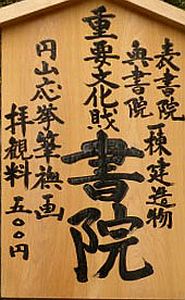 表書院
奥書院
一棟建造物
重要文化財
書院
円山応挙筆襖画
拝観料 五〇〇円